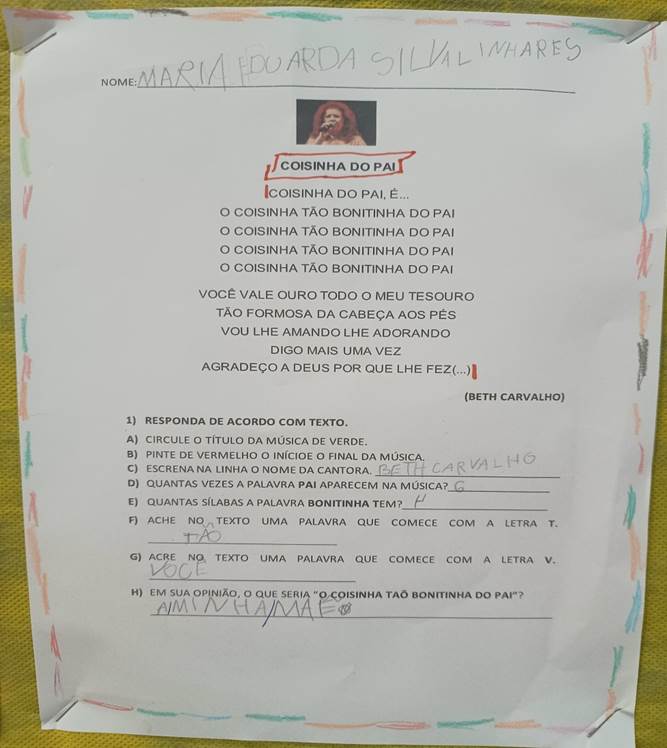 NOME: MARIA EDUARDA SILVA LINHARES
COISINHA DO PAI
COISINHA DO PAI, É...
O COISINHA TÃO BONITINHA DO PAI
O COISINHA TÃO BONITINHA DO PAI
O COISINHA TÃO BONITINHA DO PAI
O COISINHA TÃO BONITINHA DO PAI
VOCÊ VALE OURO TODO O MEU TESOURO
TÃO FORMOSA DA CABEÇA AOS PÉS
VOU LHE AMANDO LHE ADORANDO
DIGO MAIS UMA VEZ
AGRADEÇO A DEUS POR QUE LHE FEZ(...)
(BETH CARVALHO)
1) RESPONDA DE ACORDO COM TEXTO.
A) CIRCULE O TÍTULO DA MÚSICA DE VERDE.
B) PINTE DE VERMELHO O INÍCIOE O FINAL DA MÚSICA.
C) ESCRENA NA LINHA O NOME DA CANTORA. BETH CARVALHO
D) QUANTAS VEZES A PALAVRA PAI APARECEM NA MÚSICA? G
E) QUANTAS SÍLABAS A PALAVRA BONITINHA TEM? 4
F) ACHE NO TEXTO UMA PALAVRA QUE COMECE COM A LETRA T.
TÃO
G) ACRE NO TEXTO UMA PALAVRA QUE COMECE COM A LETRA V.
VOCÊ
H) EM SUA OPINIÃO, O QUE SERIA "O COISINHA TAÕ BONITINHA DO PAI"?
A MINHA MÃE